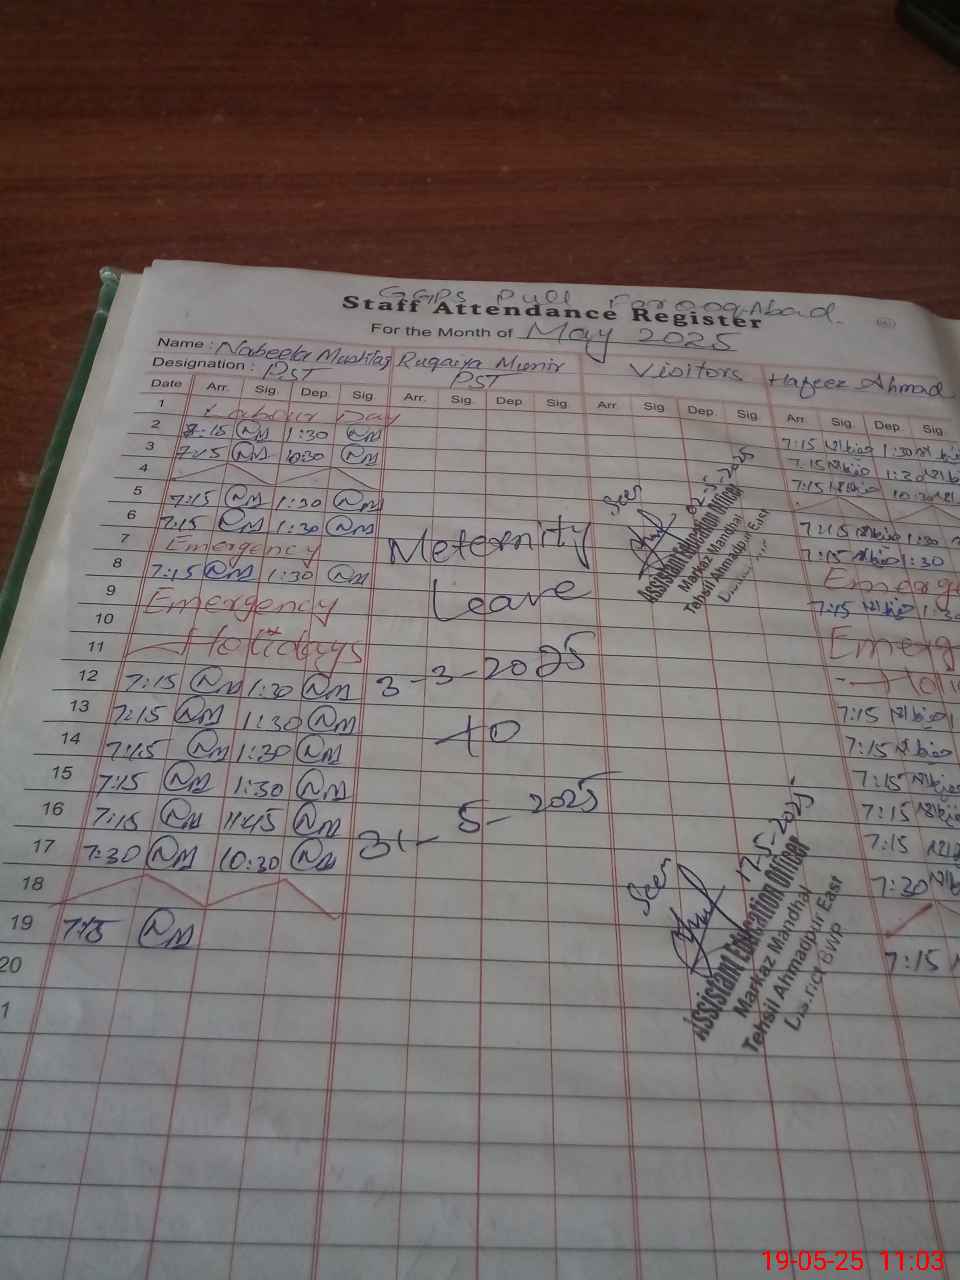 GGPS Pull Farooqabad.
Staff Attendance Register
For the Month of May 2025
Name : Nabeela Mushtaq Ruqaiya Munir Visitors Hafeez Ahmad
Designation : PST PST
Date Arr. Sig. Dep. Sig. Arr. Sig. Dep. Sig. Arr. Sig Dep. Sig. Arr. Sig. Dep. Sig.
1 Labour Day
2 7:15 NM 1:30 NM 7:15 1:30
3 7:15 NM 10:30 NM 7:15 1:30
4 7:15 10:30
5 7:15 NM 1:30 NM
6 7:15 NM 1:30 NM 7:15 1:30
7 Emergency 7:15 1:30
8 7:15 NM 1:30 NM Emerge
9 Emergency 7:15 1:30
10 Emerg
11 Holidays
12 7:15 NM 1:30 NM
13 7:15 NM 1:30 NM 7:15
14 7:15 NM 1:30 NM 7:15
15 7:15 NM 1:30 NM 7:15
16 7:15 NM 11:45 NM 7:15
17 7:30 NM 10:30 NM 7:15
18 7:30
19 7:15 NM
20 7:15
1
Meternity
Leave
3-3-2025
to
31-5-2025
Seen
02-5-2025
Assistant Education Officer
Markaz Mandhal
Tehsil Ahmadpur East
Seen
17-5-2025
Assistant Education Officer
Markaz Mandhal
Tehsil Ahmadpur East
District BWP
19-05-25 11:03